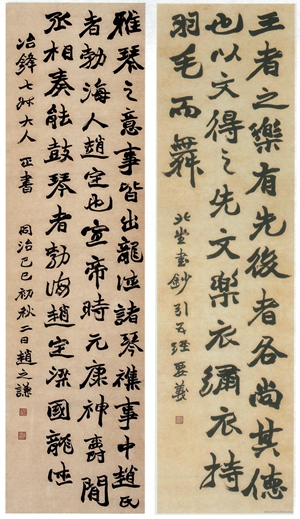 王者之樂有先後者各尚其德
也以文得之先文樂衣彌衣持
羽毛而舞
北堂書鈔引五經要義
雅琴之意事皆出龍德諸琴襍事中趙氏
者勃海人趙定也宣帝時元康神爵間
丞相奏能鼓琴者勃海趙定梁國龍德
冶鋒七大人正書 同治己巳初秋二日趙之謙